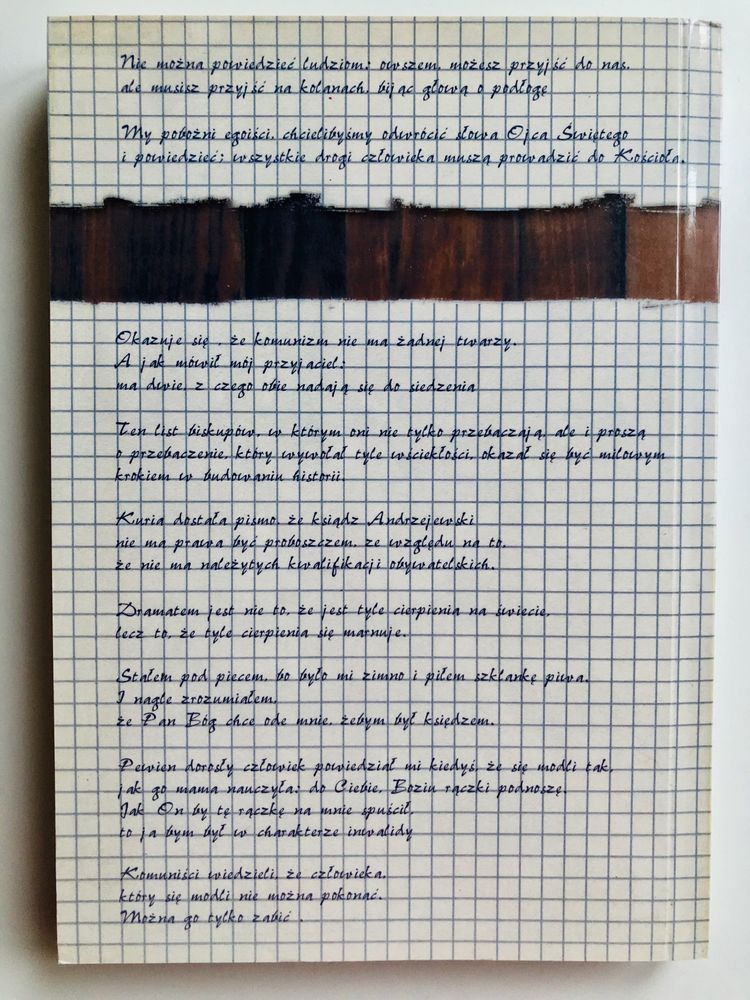 Nie można powiedzieć ludziom: owszem, możesz przyjść do nas,
ale musisz przyjść na kolanach, bijąc głową o podłogę
My pobożni egoiści, chcielibyśmy odwrócić słowa Ojca Świętego
i powiedzieć: wszystkie drogi człowieka muszą prowadzić do Kościoła.
Okazuje się , że komunizm nie ma żadnej twarzy.
A jak mówił mój przyjaciel:
ma dwie, z czego obie nadają się do siedzenia
Ten list biskupów, w którym oni nie tylko przebaczają, ale i proszą
o przebaczenie, który wywołał tyle wściekłości, okazał się być milowym
krokiem w budowaniu historii.
Kuria dostała pismo, że ksiądz Andrzejewski
nie ma prawa być proboszczem, ze względu na to,
że nie ma należytych kwalifikacji obywatelskich.
Dramatem jest nie to, że jest tyle cierpienia na świecie,
lecz to, że tyle cierpienia się marnuje.
Stałem pod piecem, bo było mi zimno i piłem szklankę piwa.
I nagle zrozumiałem,
że Pan Bóg chce ode mnie, żebym był księdzem.
Pewien dorosły człowiek powiedział mi kiedyś, że się modli tak,
jak go mama nauczyła: do Ciebie, Boziu rączki podnoszę.
Jak On by tę rączkę na mnie spuścił,
to ja bym był w charakterze inwalidy
Komuniści wiedzieli, że człowieka,
który się modli nie można pokonać.
Można go tylko zabić .